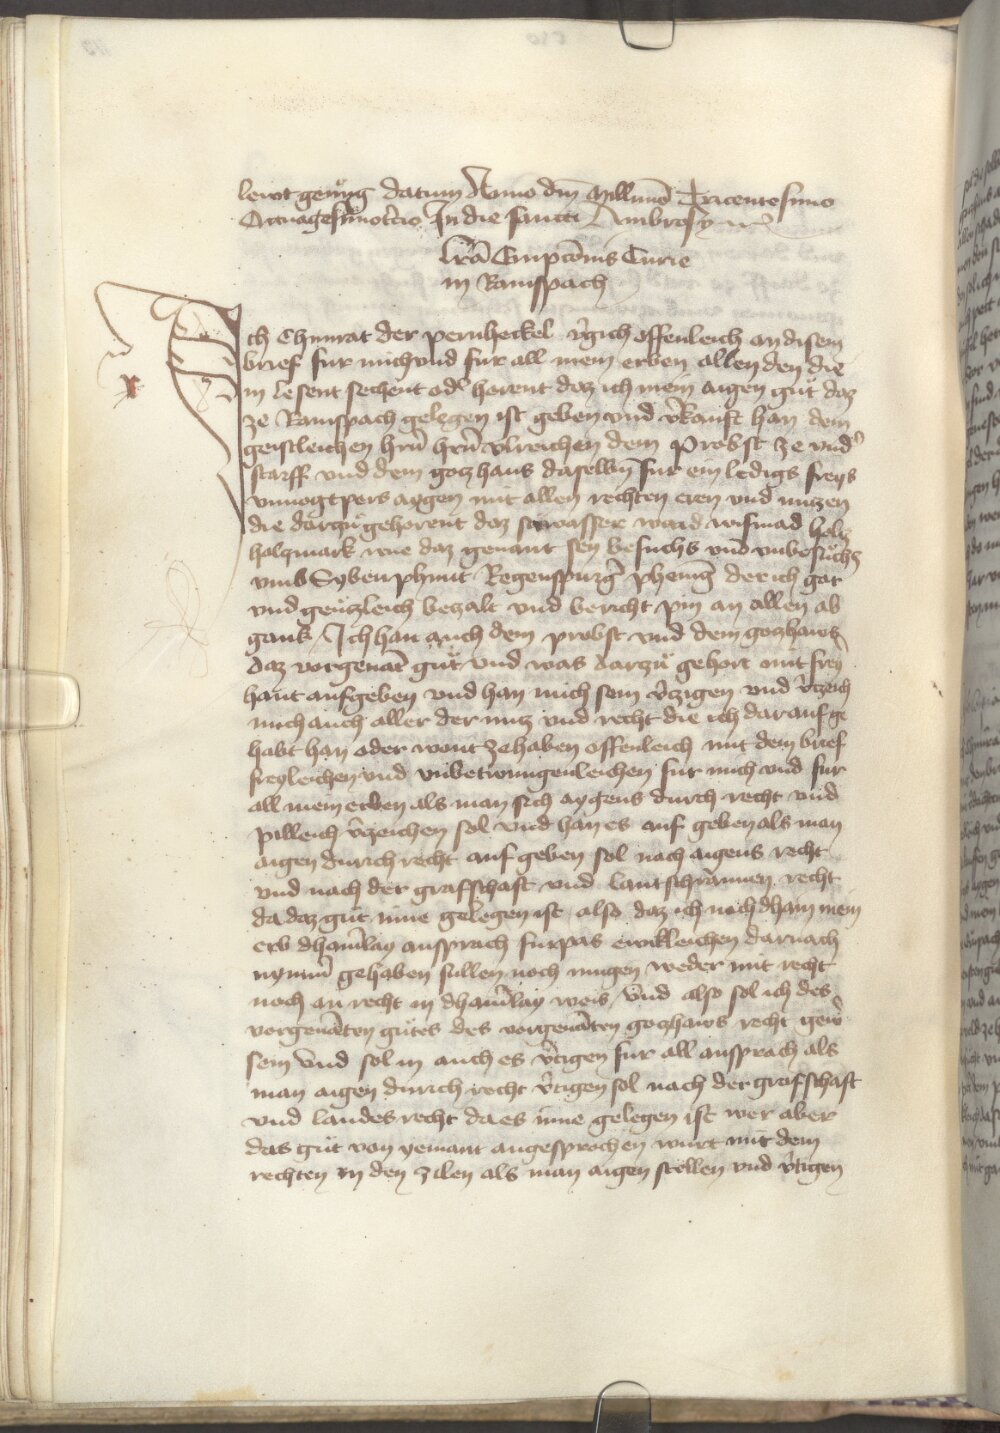 lewt genüg datum Anno dm̄ Millmō Tricentesimo
Octuagesimotcio In die sancti Ambrosy
lr̄a Empcōnis Curie
in Ramspach
Ich Chunrat der pernheckel v̄gich offenleich an disem
brief fur mich vnd fur all mein erben allen den die
in lesent sechent od̄ horent daz ich mein aigen gůt daz
ze Ramspach gelegen ist geben vnd v̄kauft han dem
geistleichen hrn̄ hrn̄ vlreichen dem Probst ze vnd̄
starff vnd dem goczhaus daselbn̄ fur ein ledigs freys
vnuogtpers aygen mit allen rechten eren vnd nutzen
die darzů gehorent daz sey wasser waid wismad holcz
holczmark wie daz genant sey besuchs vnd vnbesůchs
vmb Syben phunt Regenspurḡ pheninḡ der ich gar
vnd genczleich beczalt vnd bericht pin an allen ab
gank Ich han auch dem probst vnd dem goczhaws
daz vorgenāt gůt vnd was darzů gehort mit frey
hant aufgeben vnd han mich sein v̄zigen vnd v̄tzeich
mich auch aller der nucz vnd recht die ich darauf ge
habt han oder want ze haben offenleich mit dem brief
freyleichen vnd vnbetwungenleichen fur mich vnd fur
all mein erben als man sich aygens durch recht vnd
pilleich v̄czeichen sol vnd han es auf geben als man
aigen durich recht auf geben sol nach aigens recht
vnd nach der grafschaft vnd lantschrannen recht
da daz gůt inne gelegen ist also daz ich noch dhain mein
erb dhain̄lay ansprach furpas ewikleichen darnach
nymm̄ gehaben sullen noch mugen weder mit recht
noch an recht in dhain̄lay weis Vnd also sol ich des
vorgenāten gůtes des vorgenāten goczhaws recht gew̄
sein Vnd sol in auch es v̄tigen fur all ansprach als
man aigen durich recht v̄tigen sol nach der grafschaft
vnd landes recht da es inne gelegen ist wer aber
das gůt von yemant angesprochen wurt mit dem
rechten in den zilen als man aigen stellen vnd v̄tigen